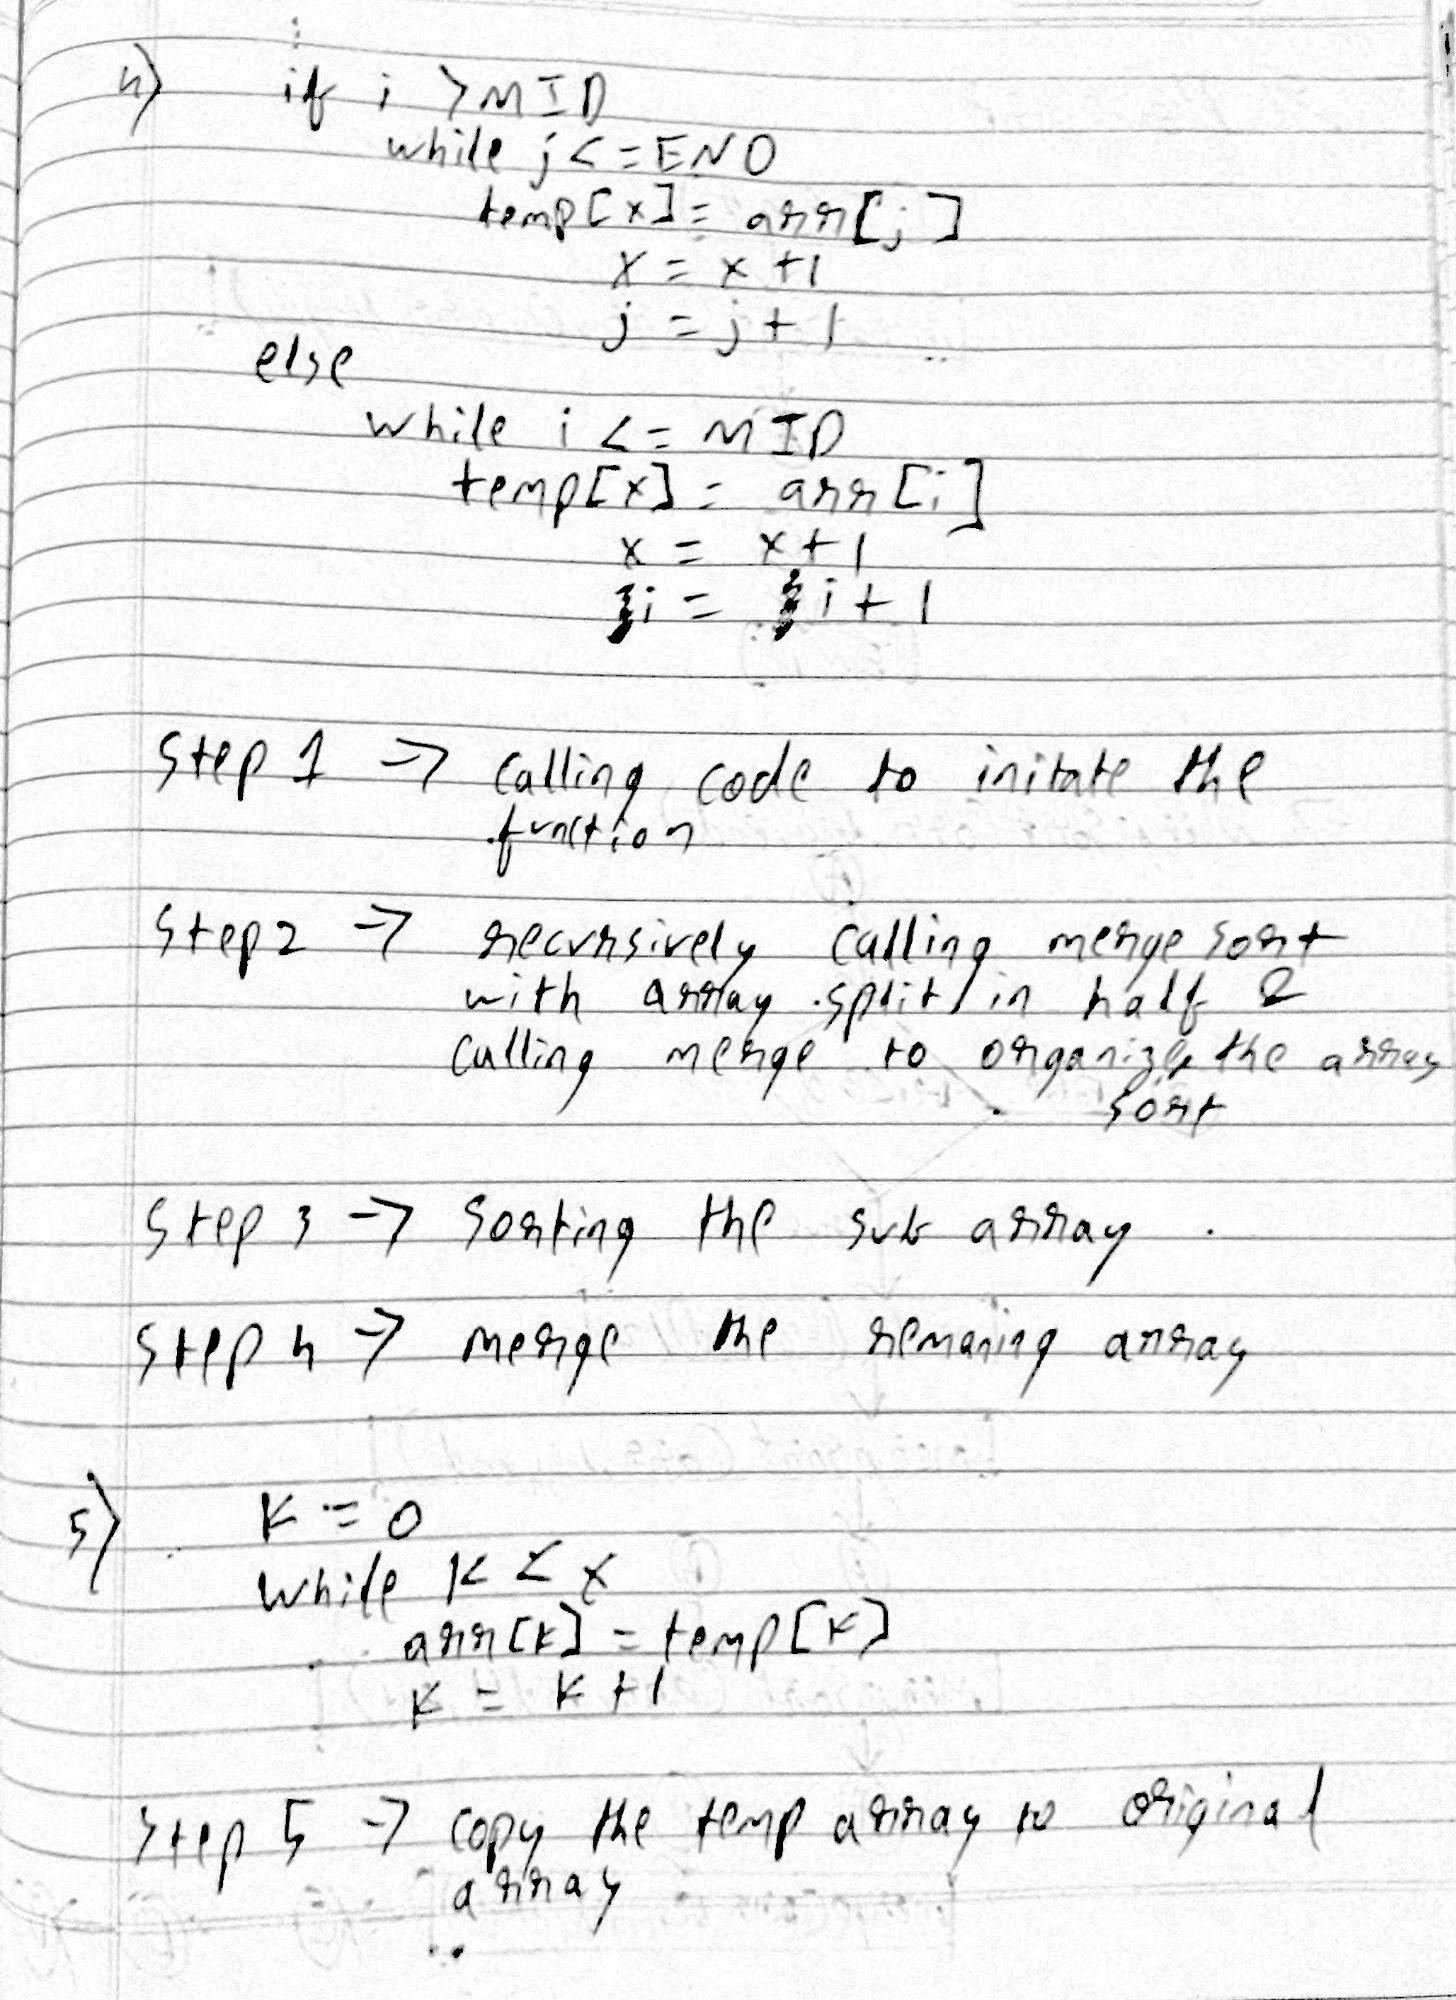 4) if i > MID
while j <= END
temp[x] = arr[j]
x = x + 1
j = j + 1
else
while i <= MID
temp[x] = arr[i]
x = x + 1
i = i + 1
Step 1 → Calling code to initate the
function
Step 2 → recursively calling mergesort
with array split in half &
calling merge to organize the array
sort
Step 3 → Sorting the sub array.
Step 4 → merge the remaning array
5) K = 0
while K < x
arr[K] = temp[K]
K = K + 1
Step 5 → copy the temp array to original
array